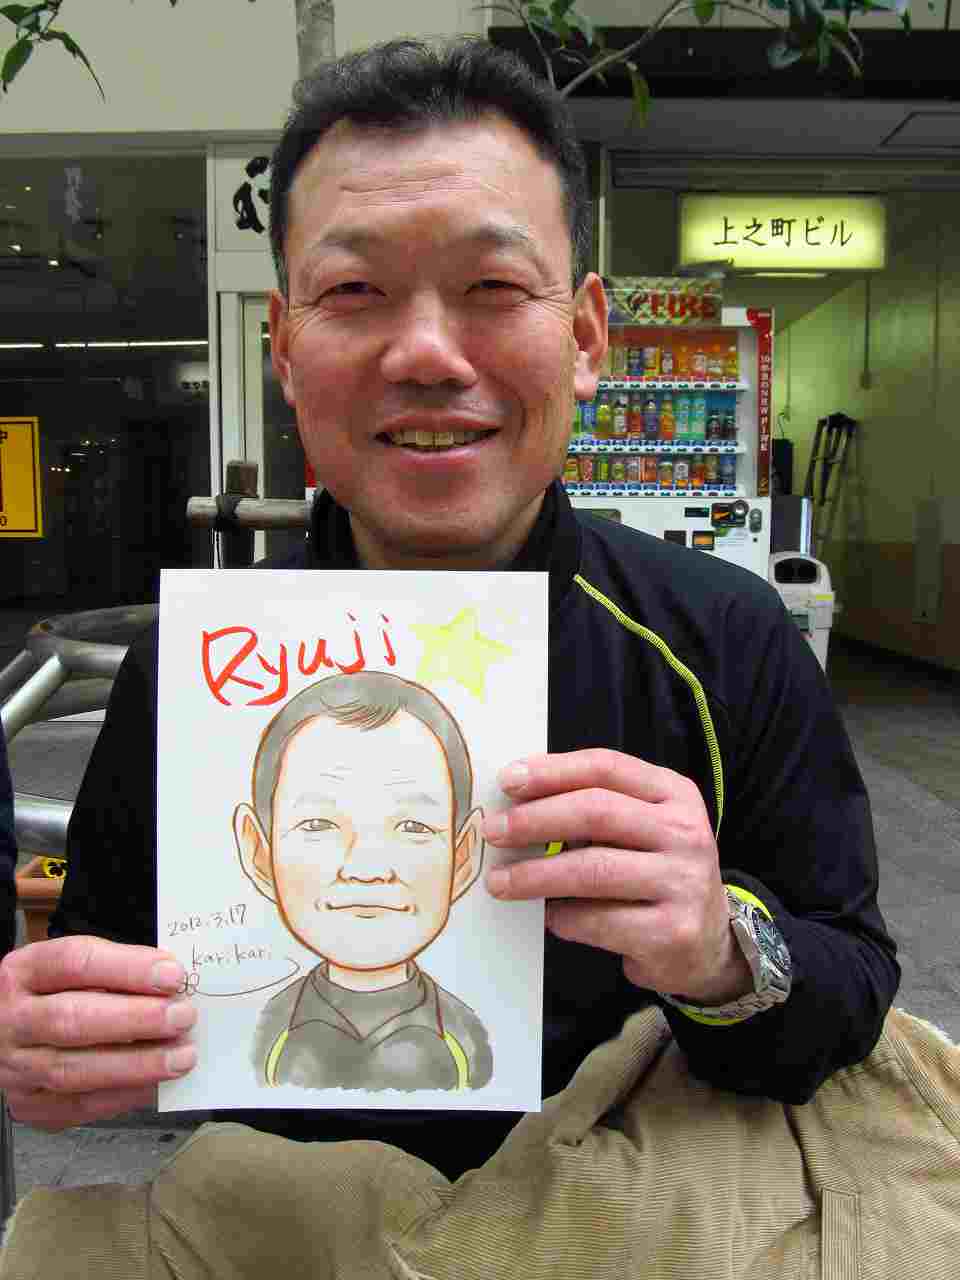 上之町ビル
FIRE
Ryuji
2012.3.17
karikari